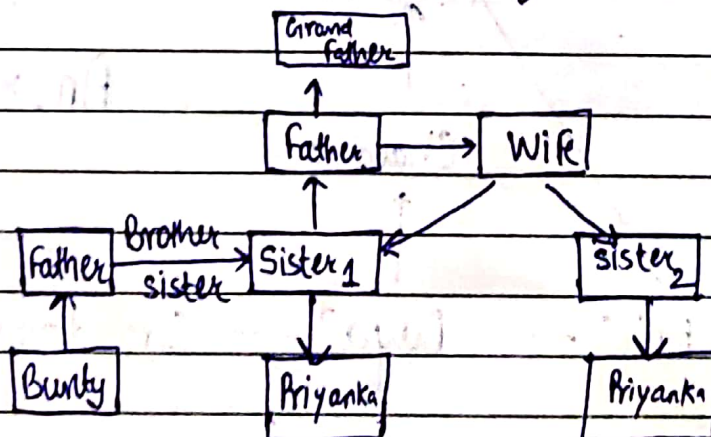 Grand
father
Father
Wife
Father
Brother
sister
Sister 1
sister 2
Bunty
Priyanka
Priyanka